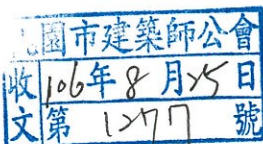 園市建築師公會
收文 106年8月25日
第1277號